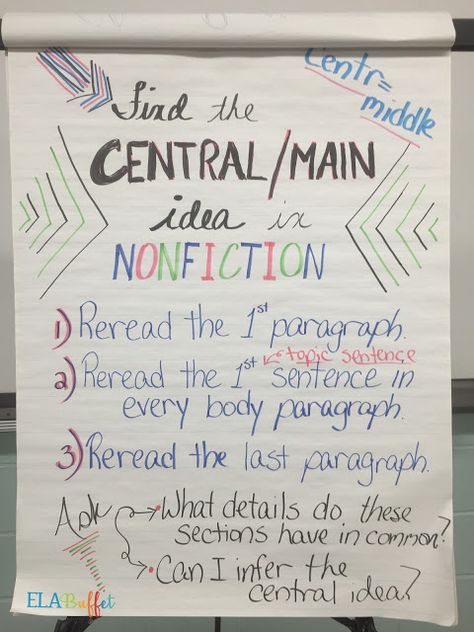 Centr=
middle
Find the
CENTRAL/MAIN
idea in
NONFICTION
1) Reread the 1st paragraph.
topic sentence
2) Reread the 1st sentence in
every body paragraph.
3) Reread the last paragraph.
Ask
What details do these
sections have in common?
Can I infer the
central idea?
ELA Buffet